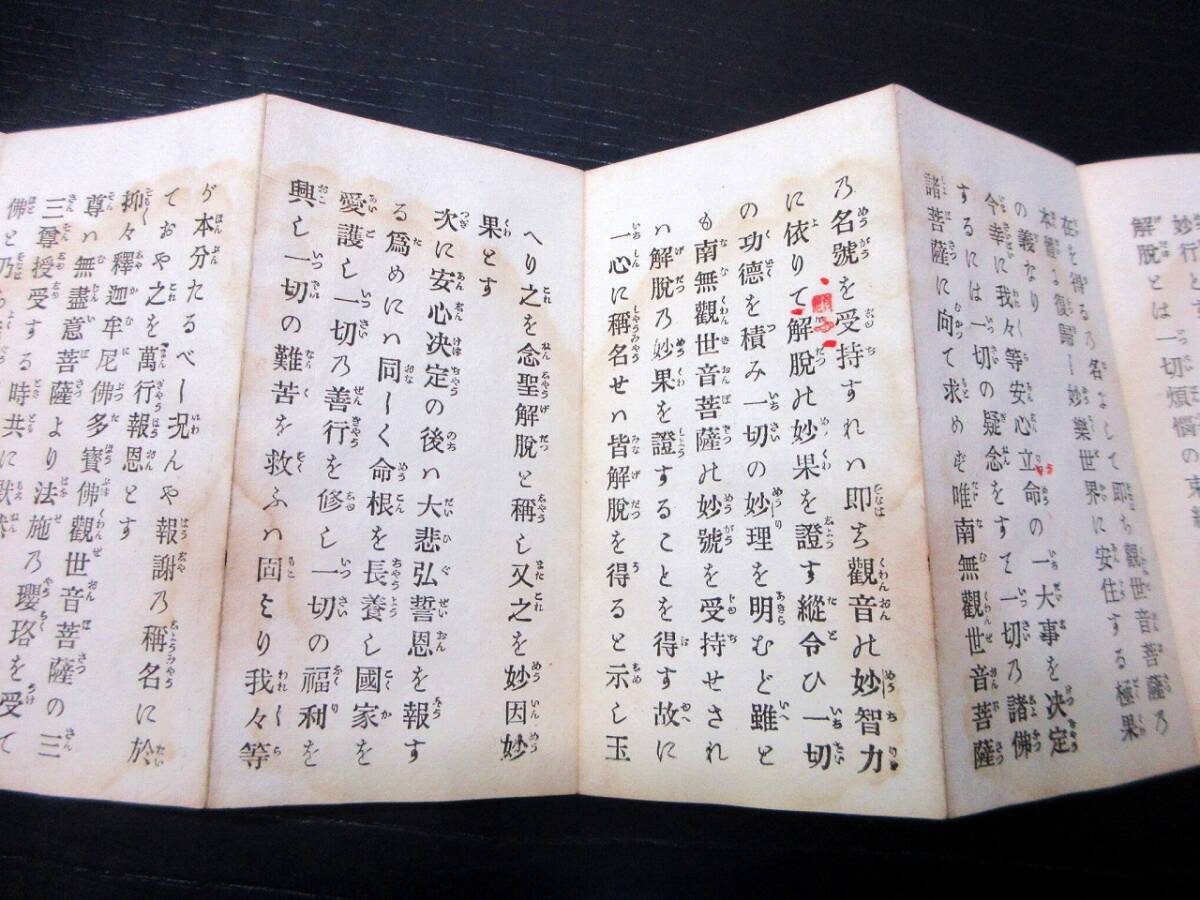 妙行と
解脱とは一切煩悩の束
を得る乃名よして即ち觀世音菩薩乃
本體よ復歸し妙樂世界に安住する極果
の義なり
今幸に我々等安心立命の一大事を决定
するには一切の疑念をすて一切乃諸佛
諸菩薩に向て求めず唯南無觀世音菩薩
乃名號を受持すれハ即ち觀音の妙智力
に依りて解脱の妙果を證す縱令ひ一切
の功德を積み一切の妙理を明むと雖と
も南無觀世音菩薩の妙號を受持せされ
ハ解脱乃妙果を證することを得す故に
一心に稱名せハ皆解脱を得ると示し玉
へり之を念聖解脱と稱し又之を妙因妙
果とす
次に安心决定の後ハ大悲弘誓恩を報す
る爲めにハ同しく命根を長養し國家を
愛護し一切乃善行を修し一切の福利を
興し一切の難苦を救ふハ固より我々等
が本分たるべし况んや報謝乃稱名に於
ておや之を萬行報恩とす
抑々釋迦牟尼佛多寶佛觀世音菩薩の三
尊ハ無盡意菩薩より法施乃瓔珞を受て
三尊授受する時共に
佛と乃